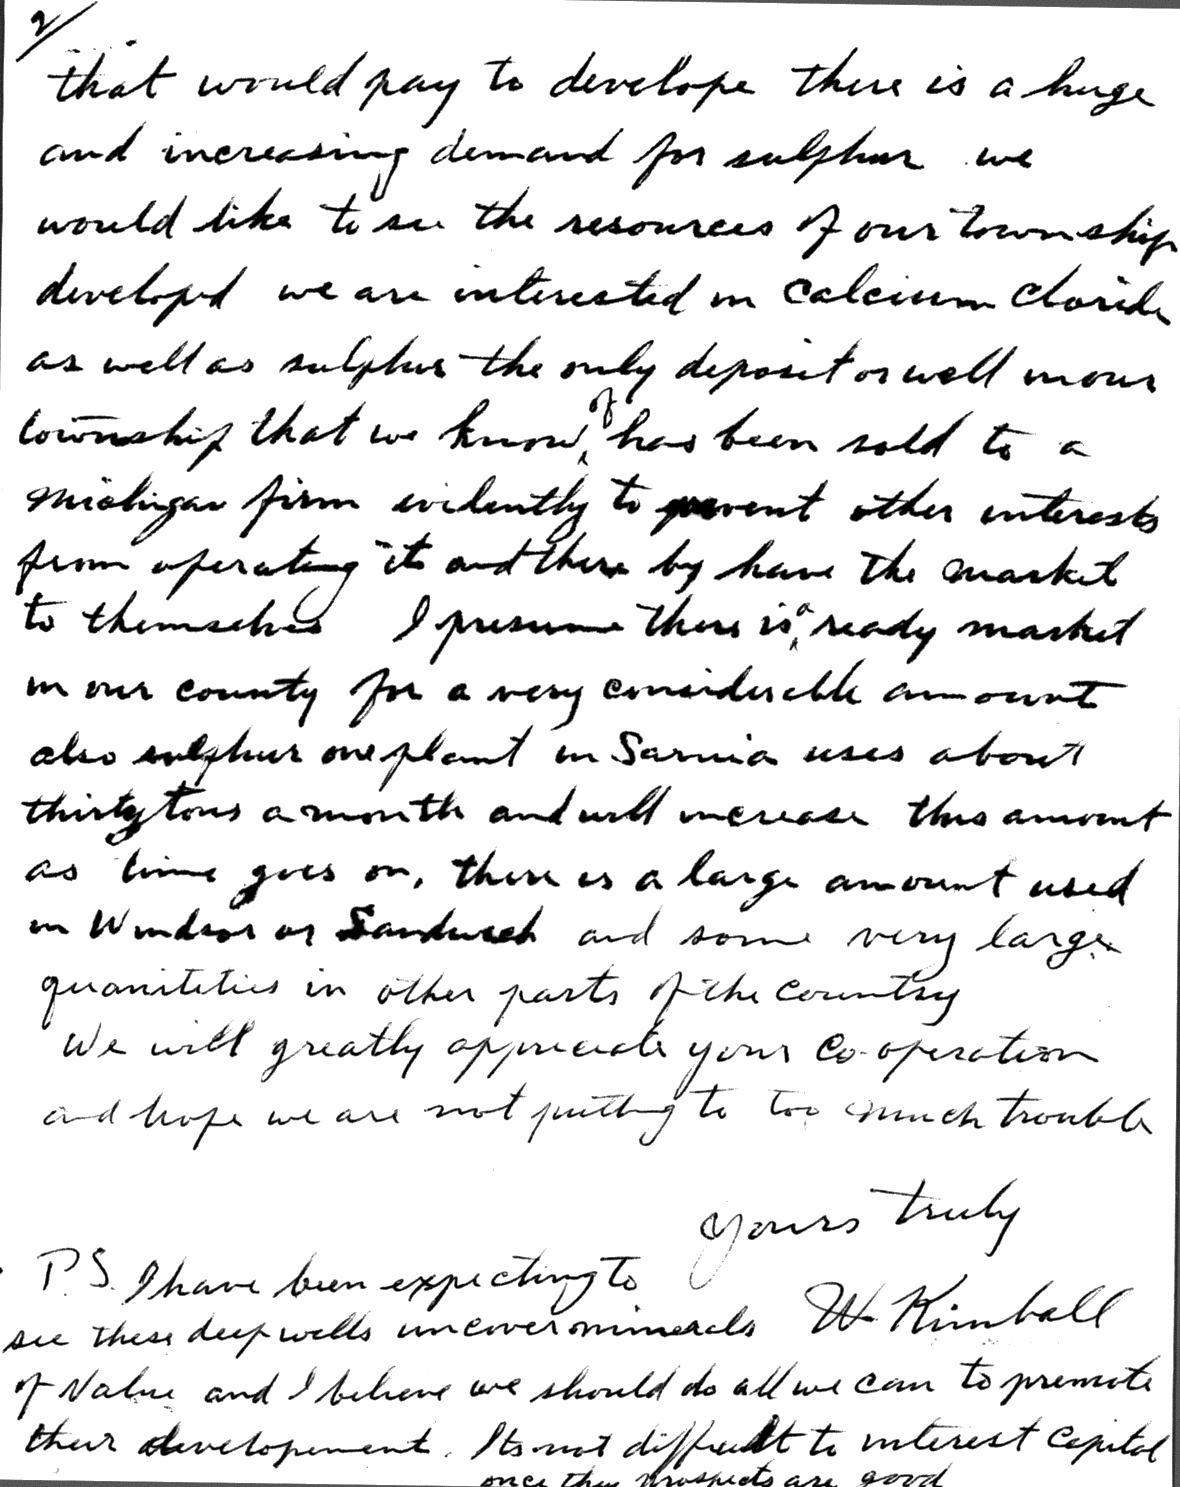 2/
that would pay to develope there is a huge
and increasing demand for sulphur we
would like to see the resources of our township
developed we are interested in Calcium Cloride
as well as sulphur the only deposit or well in our
township that we know of has been sold to a
Michigan firm evidently to prevent other interests
from operating it and there by have the market
to themselves I presume there is a ready market
in our county for a very considerable amount
also sulphur one plant in Sarnia uses about
thirty tons a month and will increase this amount
as time goes on, there is a large amount used
in Windsor or Sandwich and some very large
quaniteties in other parts of the country
We will greatly appreciate your co-operation
and hope we are not putting to too much trouble
Yours truly
P.S. I have been expecting to
W Kimball
see these deep wells uncover minerals
of value and I believe we should do all we can to promote
their developement. Its not difficult to interest capital
once the prospects are good